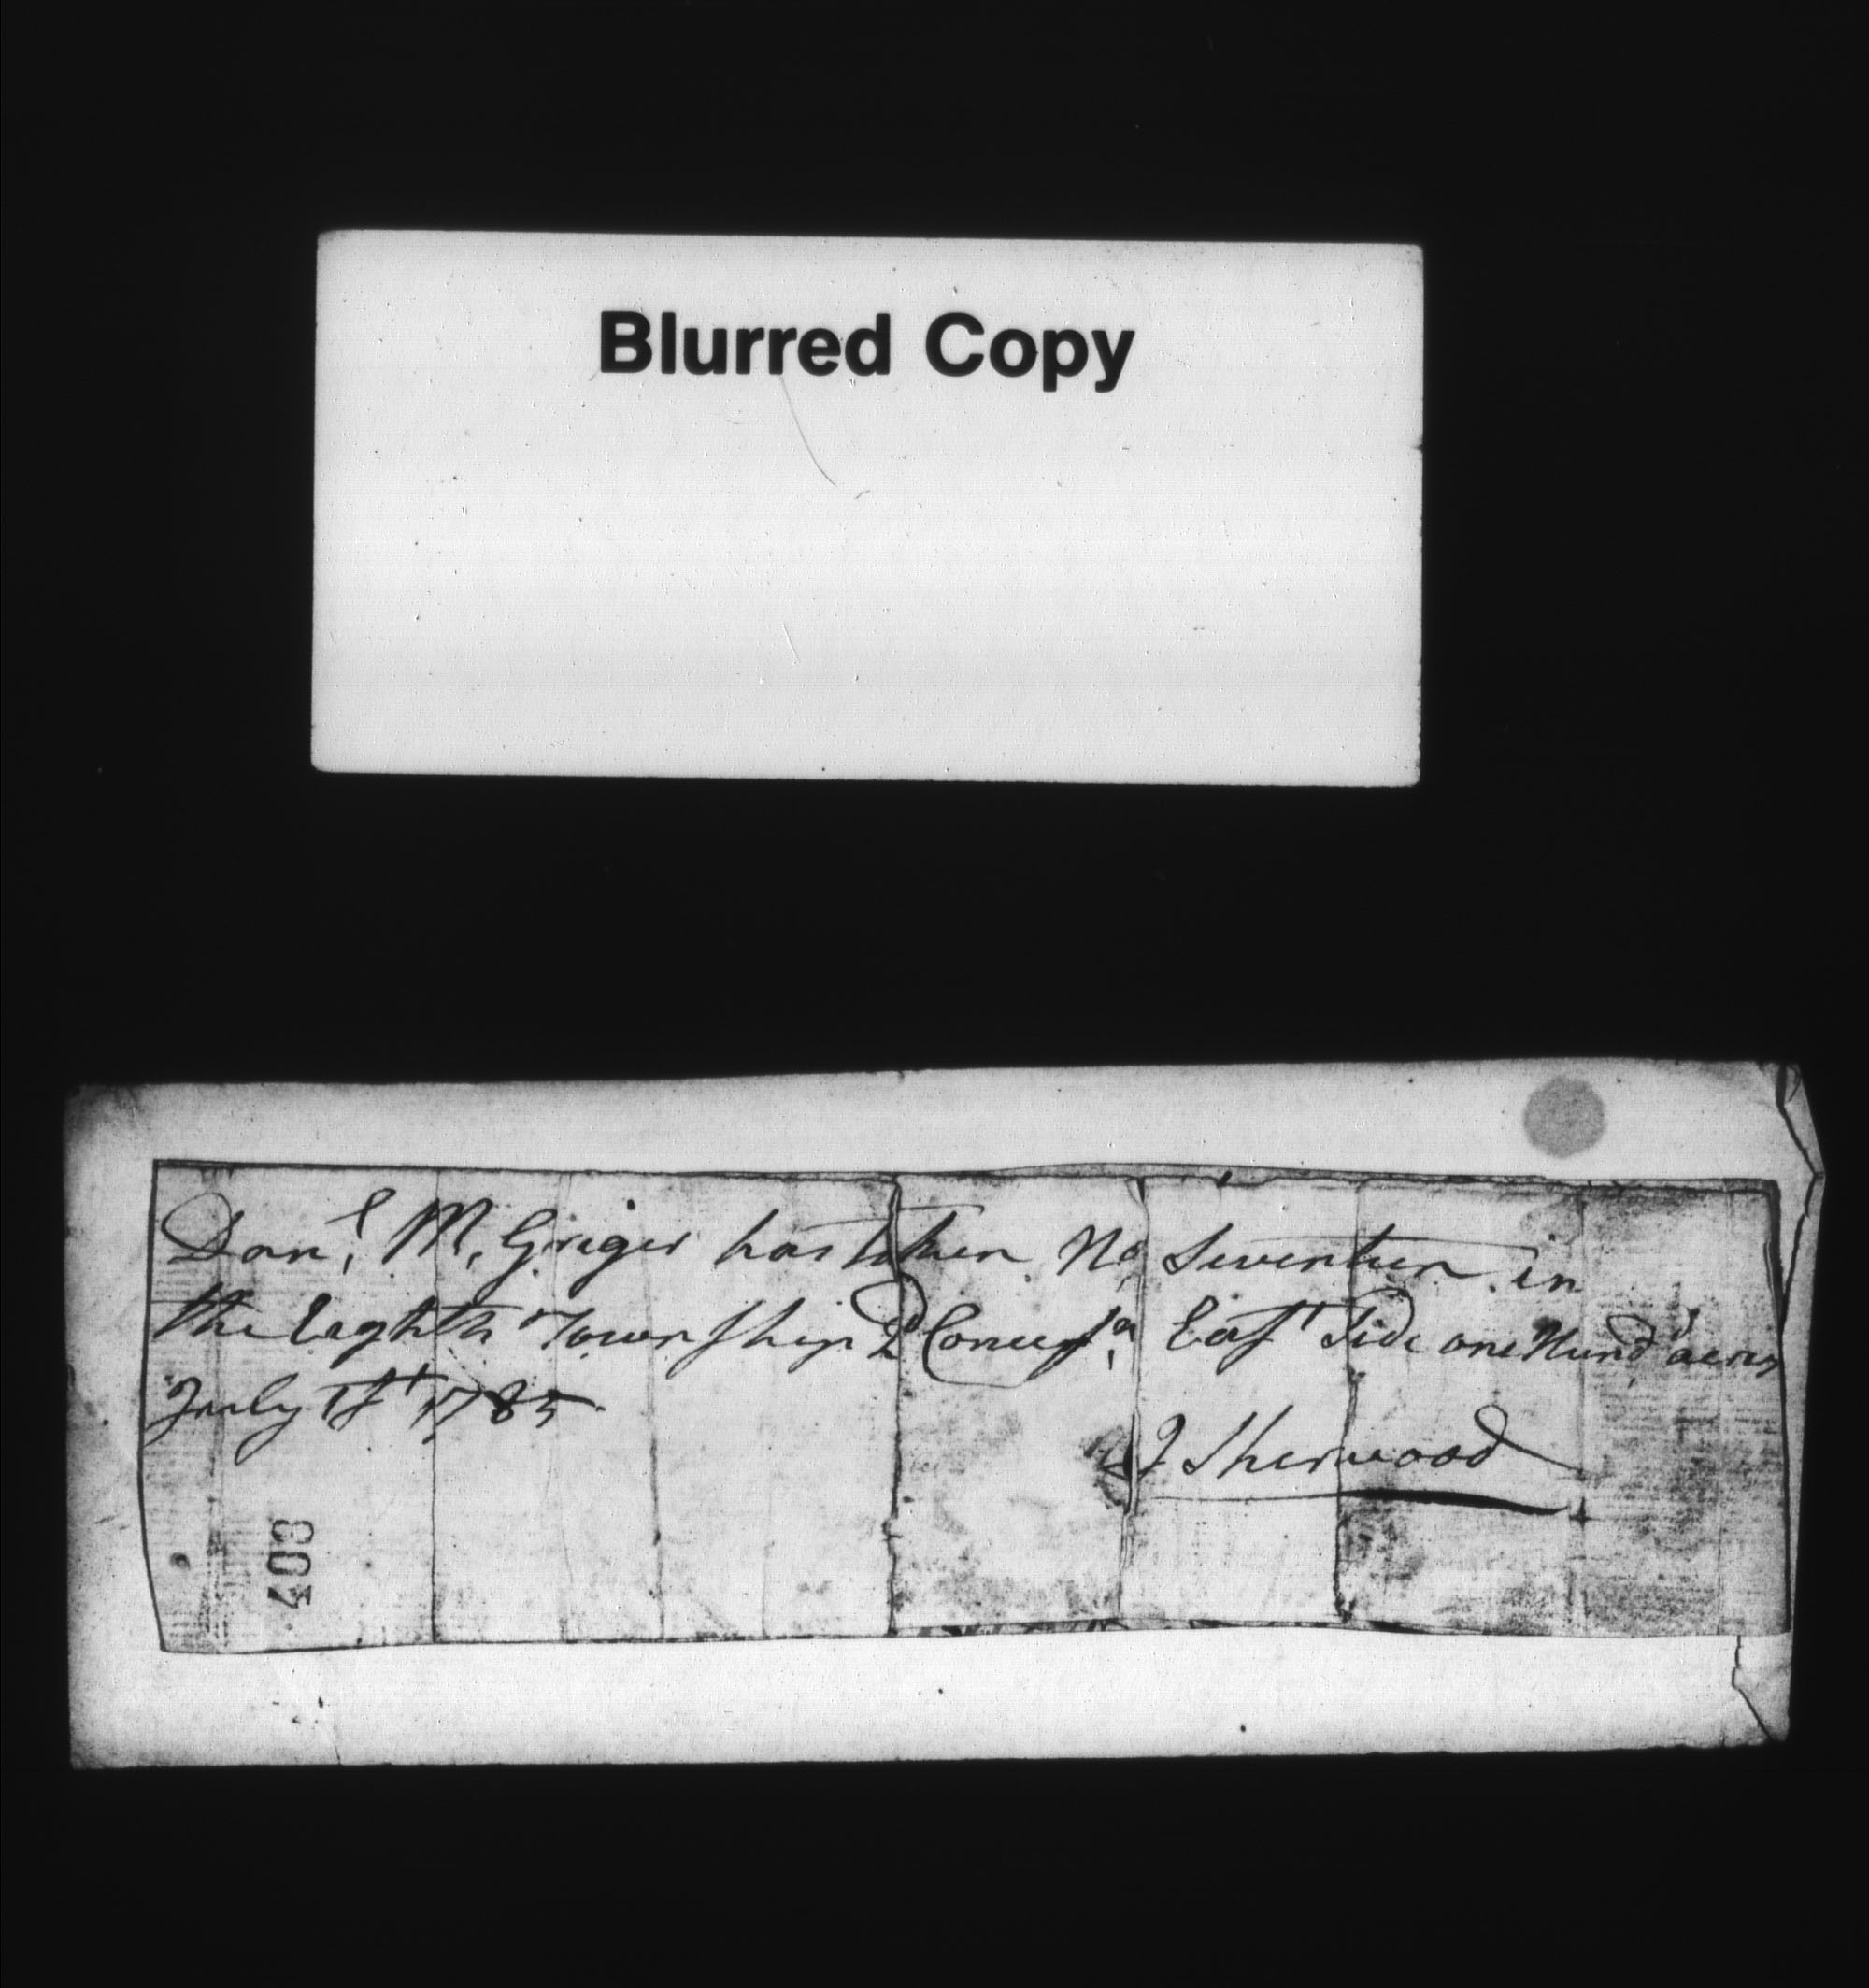 Blurred Copy
Danl. M. Griger has taken No. Seventeen in
the Eighth Township 2d East Side one Hund'd acres
July 1st 1785
J Sherwood
807